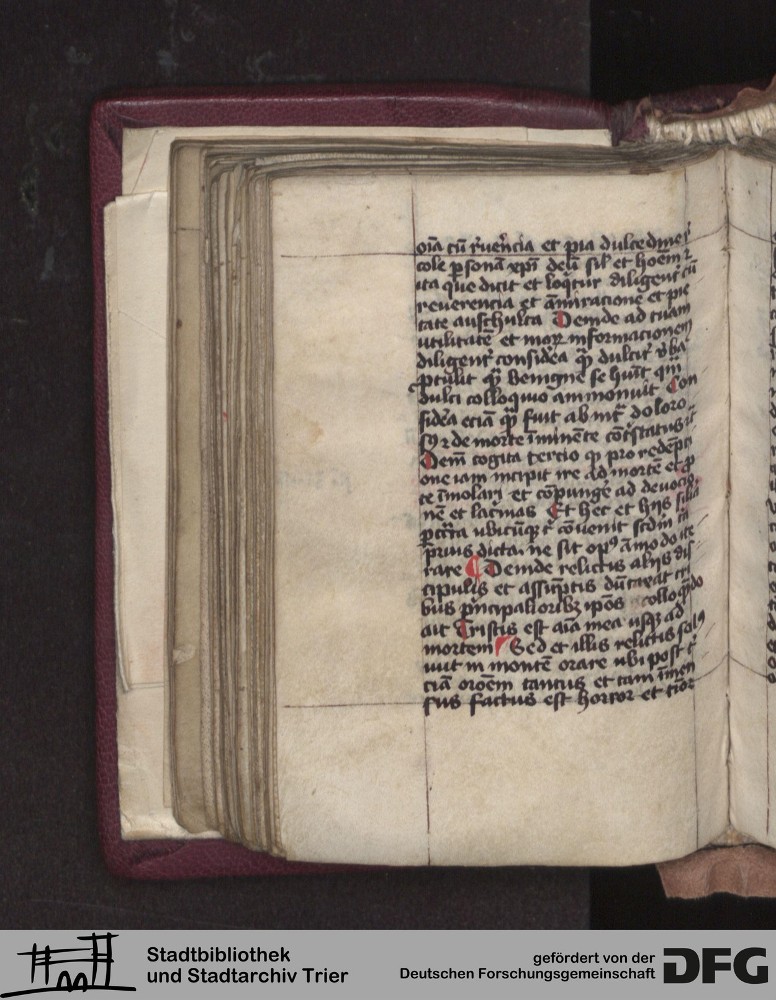 oīa cū r̄uēn̄cia et pia dulcedine
cole psonā xpī deū sil et hoēm
ita que dicit et loqtur diligent cū
reuerencia et āmiracione et pie
tate auschulta Deinde ad tuam
utilitatē et moꝝ informacionem
diligent considēa qͣ dulcit v̄ba
ptulit qͣ benigne se huit qui
dulci colloquio ammonuit Con
sidēa eciā qͣ fuit ab
de morte īminēte
Dem cogita tercio q pro redēpci
one iam incipit ire ad mortē et p
te īmolari et cōpungē ad deuocio
nē et lacrimas Et hec et hijs silia
ubicūqꝫ cōuenit scdm
prius dicta ne sit opꝰ āmodo ite
rare Deinde relictis alijs dis
cipulis et assūptis
bus pncipalioribꝫ ipōs colloqndo
ait Tristis est aīa mea usqꝫ ad
mortem Sed et illis relictis solꝰ
iuit in montē orare ubi post
ciā orōem tantus et tam īmen
sus factus est horror et
Stadtbibliothek
und Stadtarchiv Trier
gefördert von der
Deutschen Forschungsgemeinschaft
DFG